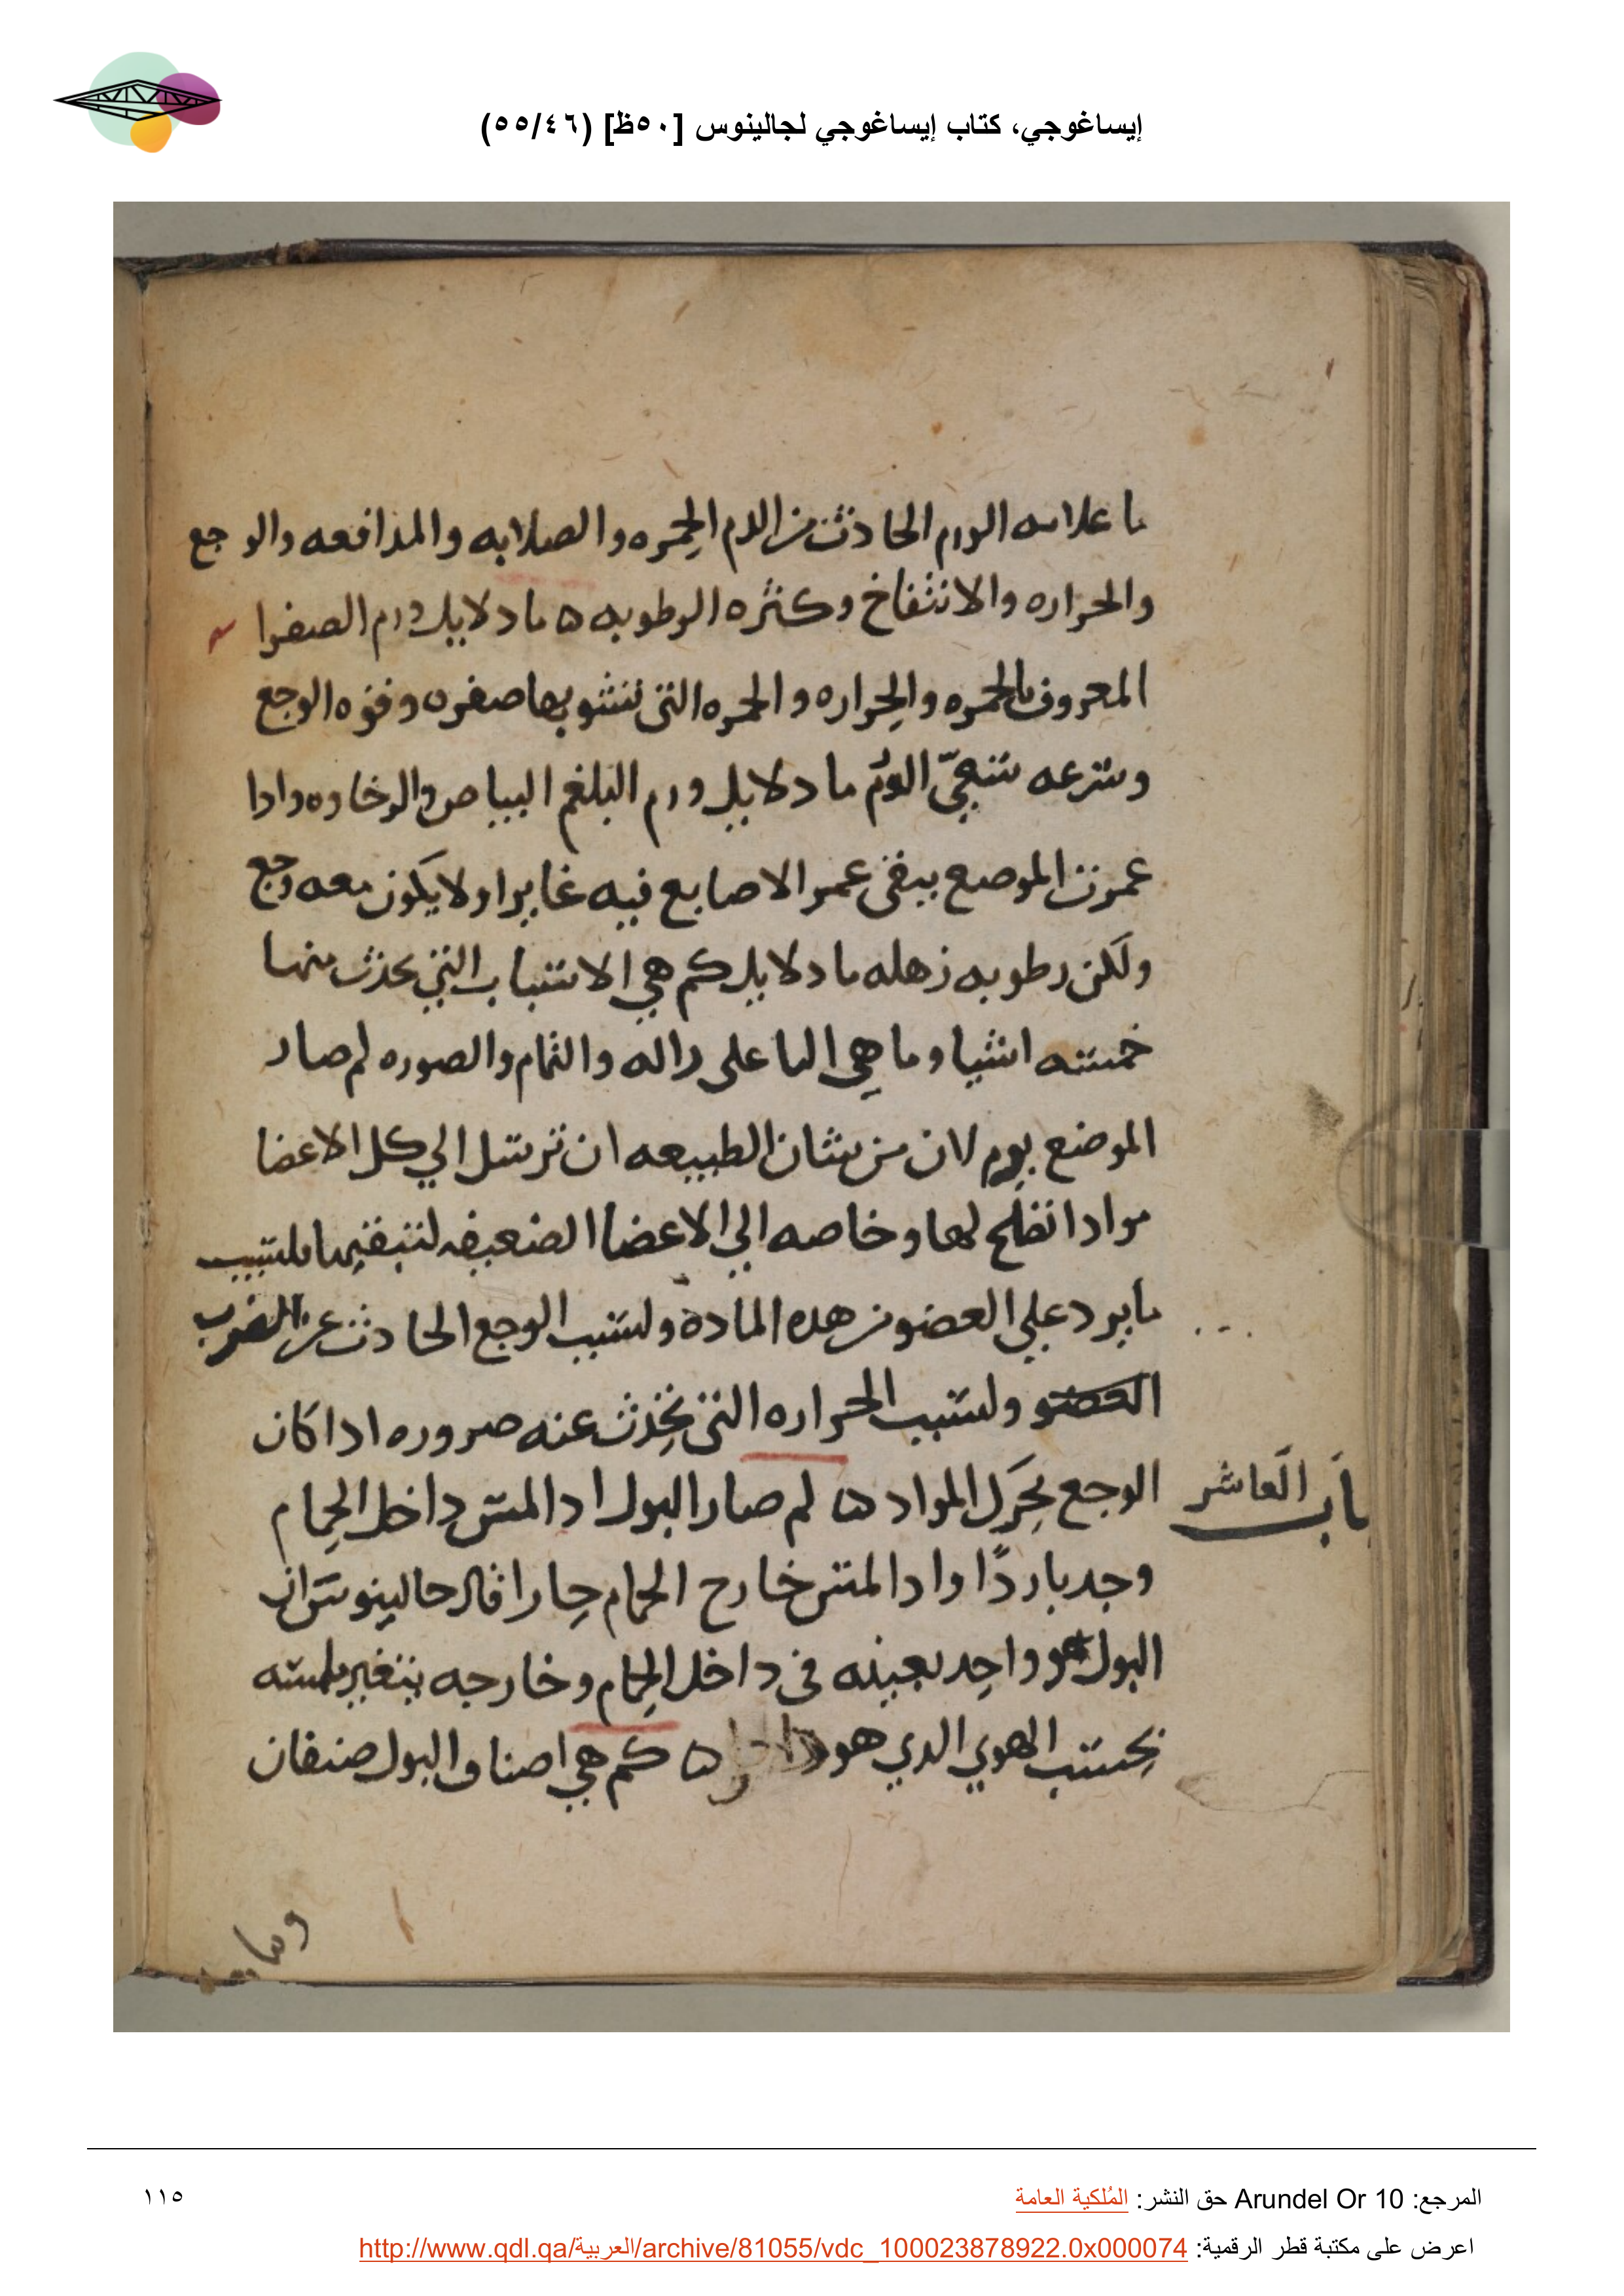 إيساغوجي، كتاب إيساغوجي لجالينوس [٥٠ظ] (٥٥/٤٦)
ما علامه الورم الحادث من الدم الحمره والصلابه والمدافعه والوجع
والحراره والانتفاخ وكثره الرطوبه ه ما دلايل ورم الصفرا
المعروف بالحمره والحراره والحمره التى تشوبها صفره وقوه الوجع
وسرعه الورم ما دلايل ورم البلغم البياض والرخاوه وادا
عمزت الموضع يبقى عمر الاصابع فيه غايرا ولا يكون معه وجع
ولكن رطوبه زهله ما دلايل كم هي الاسباب التي يحدث منها
خمسه اشيا وما هي الفاعل والاله والتمام والصوره لم صار
الموضع يورم لان من شان الطبيعه ان ترسل الي كل الاعضا
موادا لها وخاصه الي الاعضا الضعيفه لسبب
ما يرد علي العضو من هده المادة ولسبب الوجع الحادث عن الضرب
العضو ولسبب الحراره التى تحدث عنه ضروره ادا كان
الوجع يحرك المواد ه لم صار البول ادا لمس داخل الحمام
باب العاشر
وجد باردًا وادا لمس خارج الحمام حارا قال جالينوس ان
البول هو واحد بعينه في داخل الحمام وخارجه يتغير لمسه
بحسب الهوي الدي هو ه كم هي اصناف البول صنفان
المرجع: Arundel Or 10 حق النشر: المُلكية العامة
١١٥
اعرض على مكتبة قطر الرقمية: http://www.qdl.qa/العربية/archive/81055/vdc_100023878922.0x000074